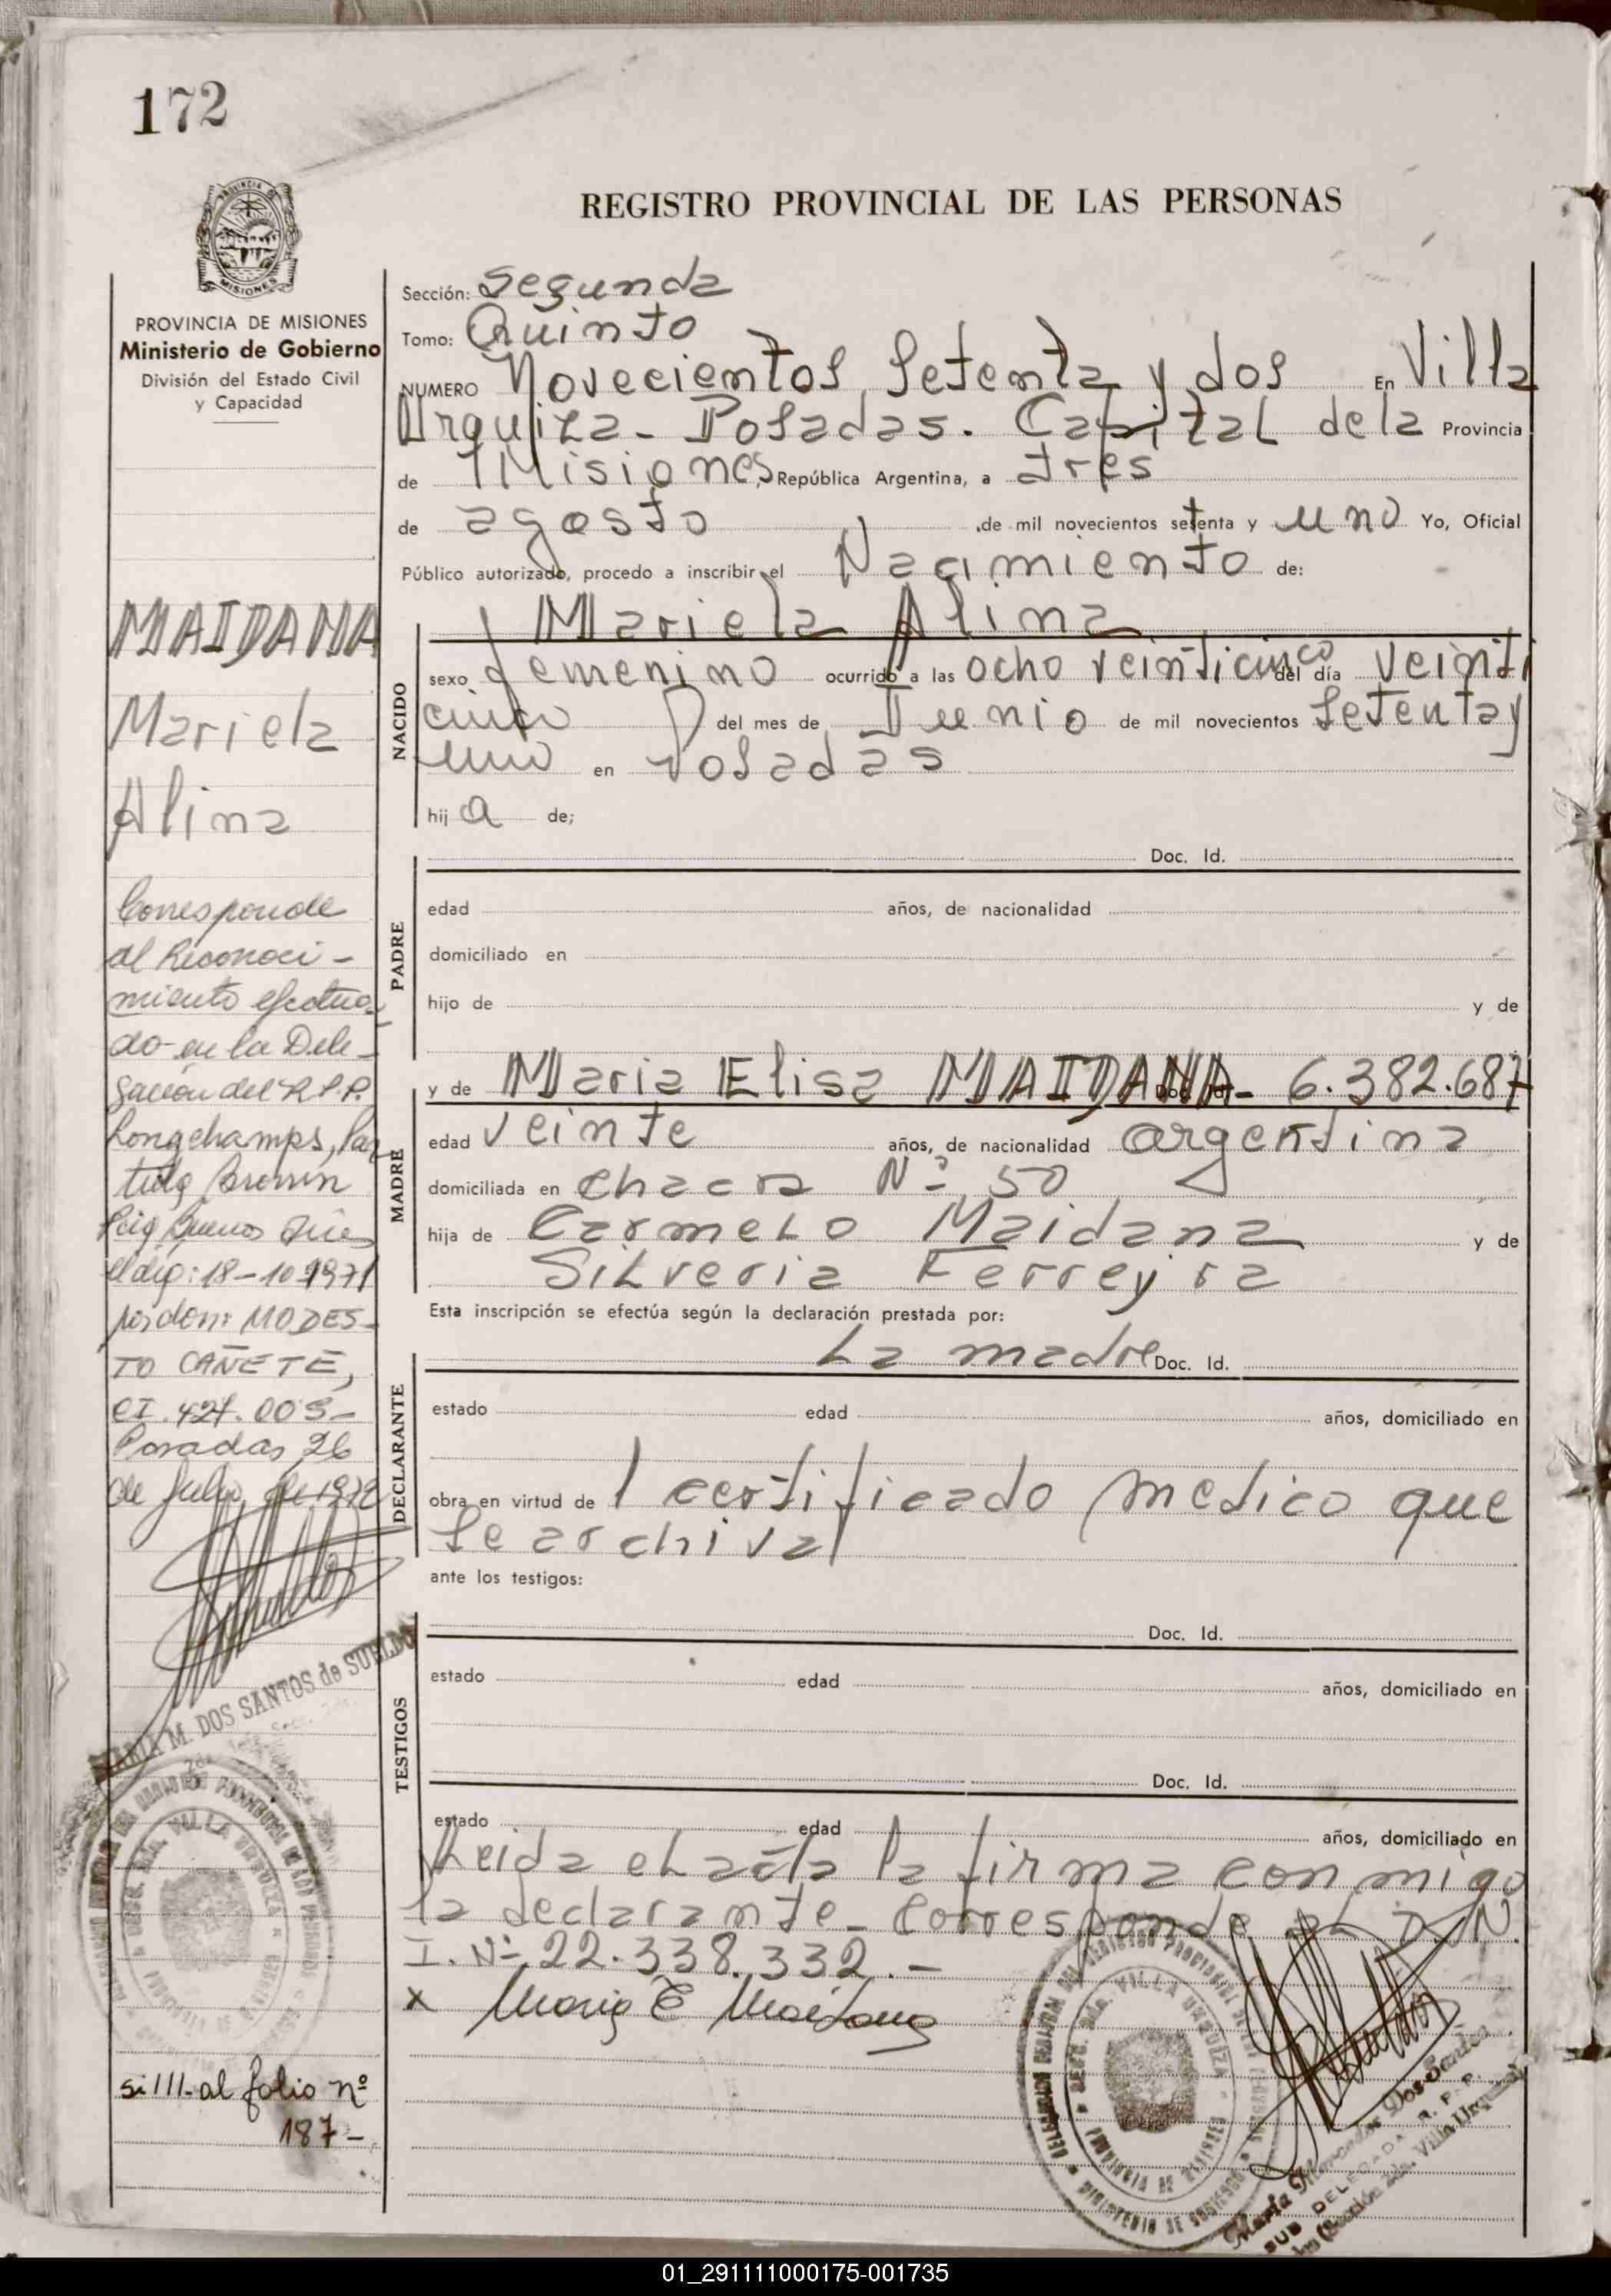 172
PROVINCIA DE MISIONES
REGISTRO PROVINCIAL DE LAS PERSONAS
PROVINCIA DE MISIONES
Ministerio de Gobierno
División del Estado Civil
y Capacidad
MAIDANA
Mariela
Alina
Corresponde
al Reconoci-
miento efectua-
do en la Dele-
gación del R.P.P.
Longchamps, Par
tido Brown
Pcia Buenos Aires
el día: 18-10-1971
por don: MODES-
TO CAÑETE,
CI. 427.005-
Posadas 26
de Julio de 1972
MARIA M. DOS SANTOS de SUELDO
si///-al folio nº
187-
Sección: Segunda
Tomo: Quinto
NUMERO Novecientos Setenta y dos En Villa
Urquiza - Posadas. Capital de la Provincia
de Misiones, República Argentina, a tres
de agosto de mil novecientos setenta y uno Yo, Oficial
Público autorizado, procedo a inscribir el Nacimiento de:
NACIDO
Mariela Alina
sexo femenino ocurrido a las ocho veinticinco del día veinti
cinco del mes de Junio de mil novecientos Setenta y
uno en Posadas
hij a de;
PADRE
Doc. Id.
edad años, de nacionalidad
domiciliado en
hijo de y de
MADRE
y de Maria Elisa MAIDANA - 6.382.687
edad veinte años, de nacionalidad argentina
domiciliada en chacra Nº 50
hija de Carmelo Maidana y de
Silveria Ferreyra
Esta inscripción se efectúa según la declaración prestada por:
DECLARANTE
La madre Doc. Id.
estado edad años, domiciliado en
obra en virtud de 1 certificado medico que
se archiva
ante los testigos:
TESTIGOS
Doc. Id.
estado edad años, domiciliado en
Doc. Id.
estado edad años, domiciliado en
Leida el acta la firma conmigo
la declarante - Corresponde el D.N.
I. Nº 22.338.332.-
x Maria E Maidana
VILLA URQUIZA
PROVINCIA DE MISIONES
Maria Mercedes Dos Santos
SUB DELEGADA R. P. P.
Villa Urquiza
01_291111000175-001735